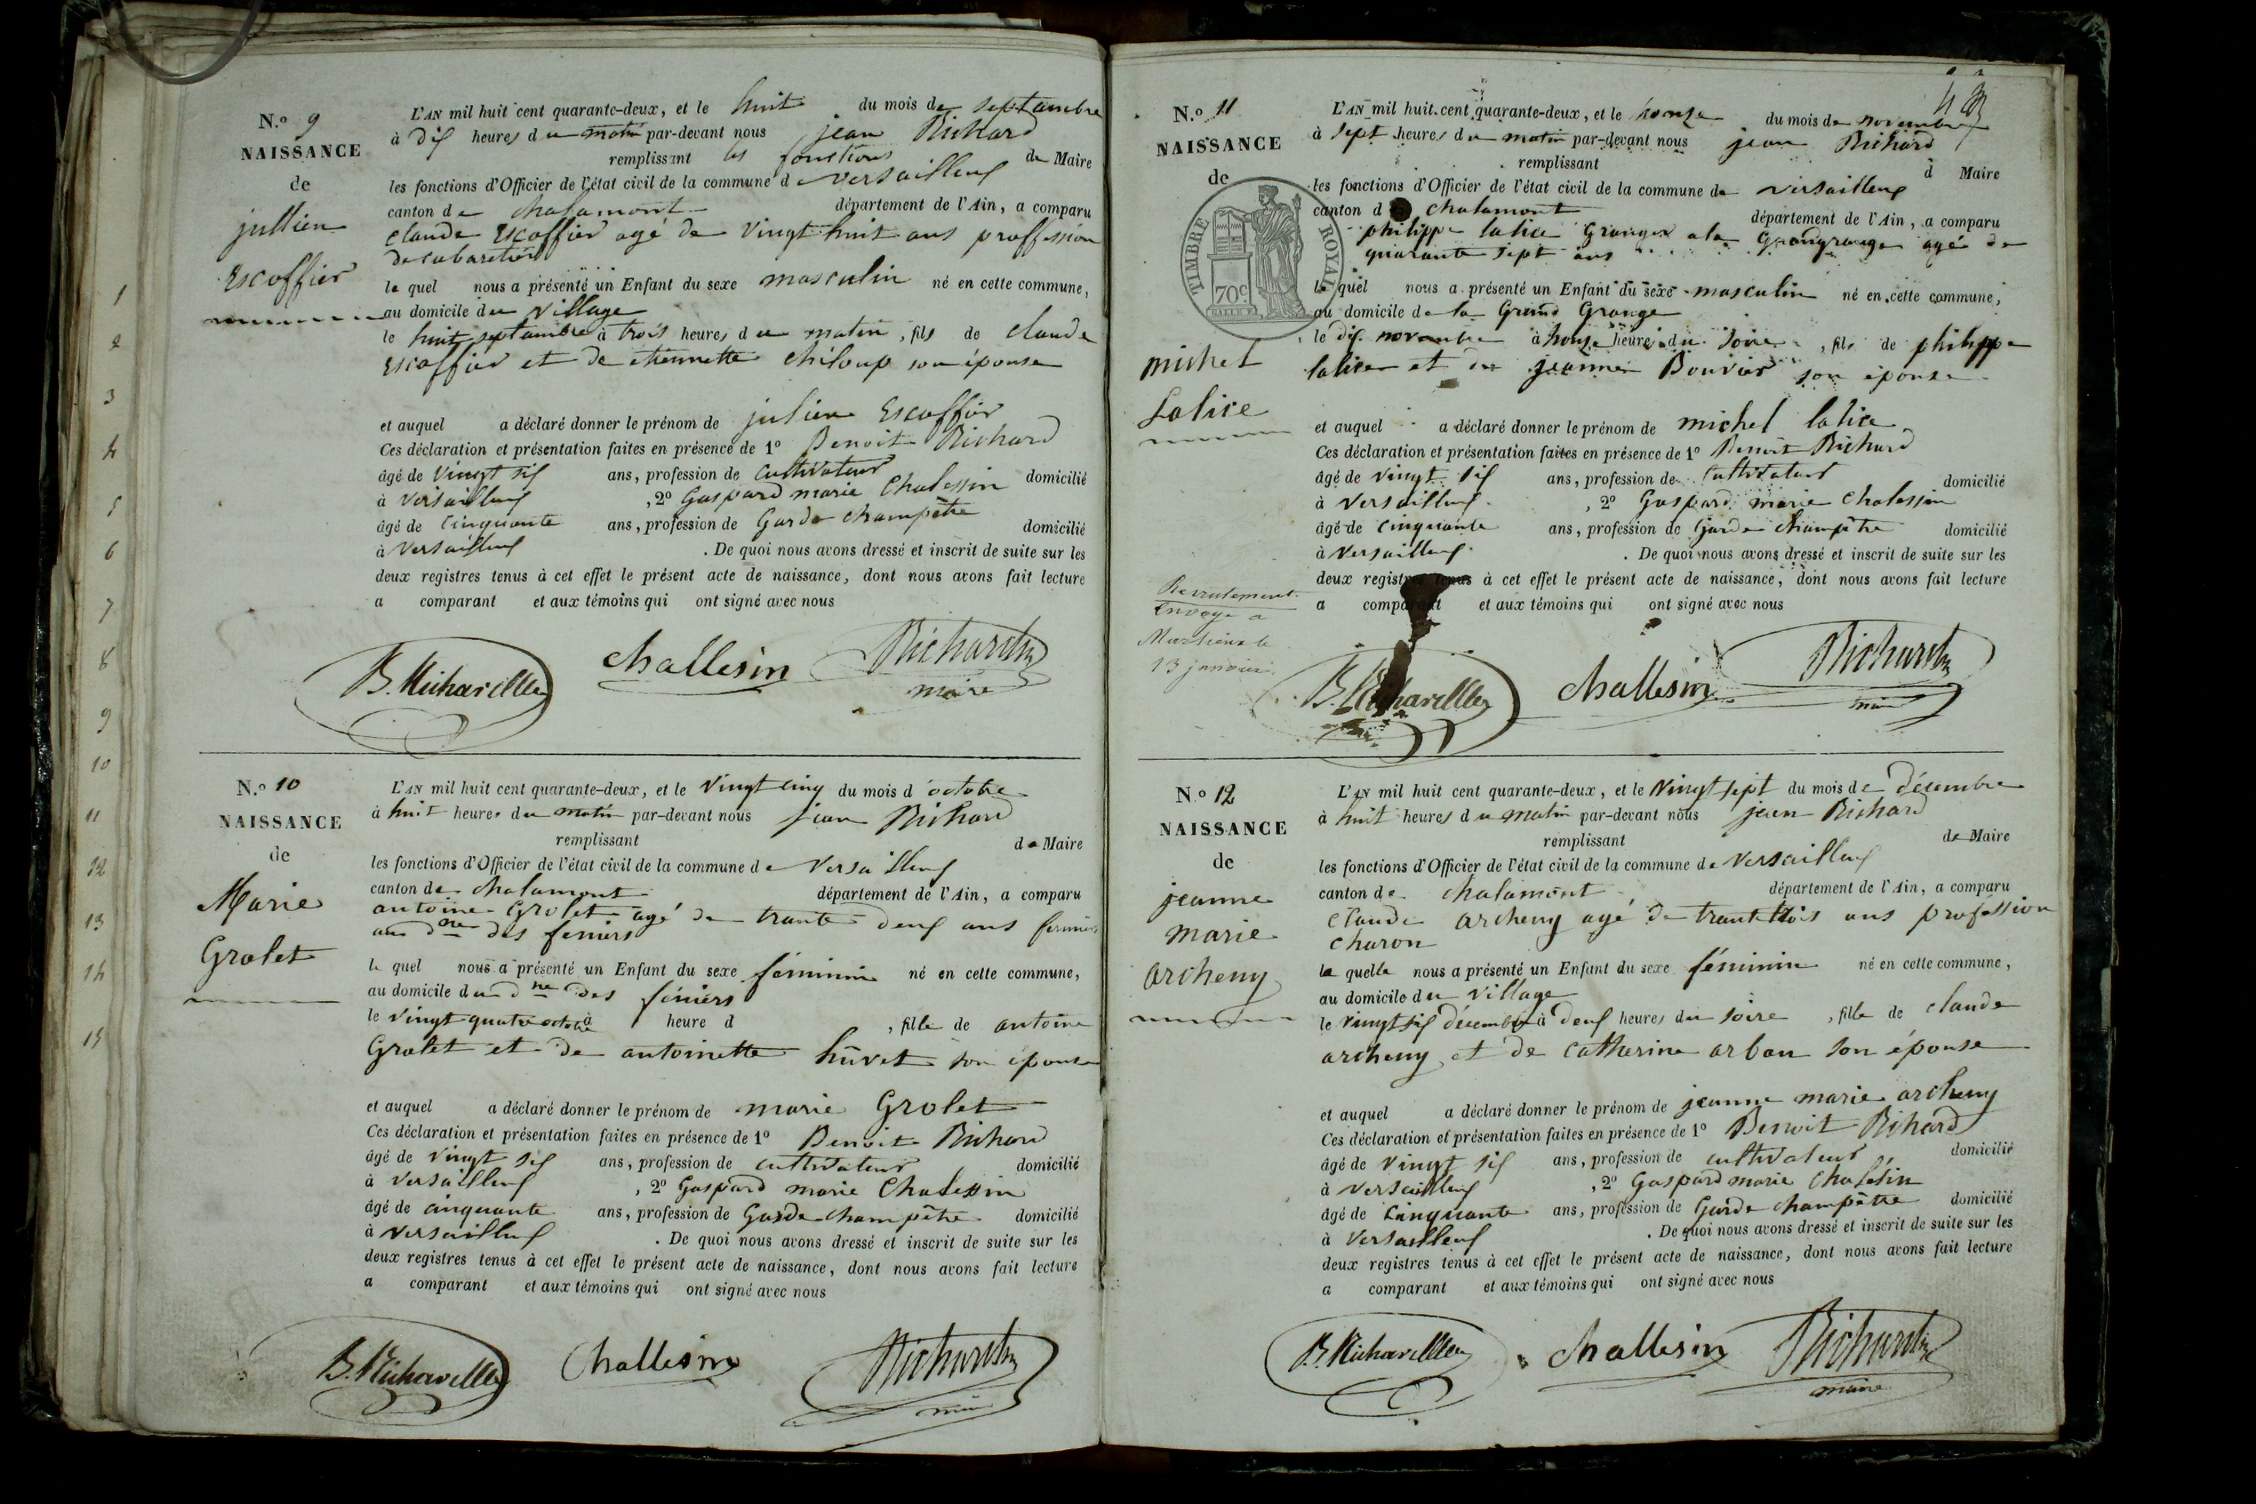 1
2
3
4
5
6
7
8
9
10
11
12
13
14
15
N.o 9
NAISSANCE
de
jullien
Escoffier
L'AN mil huit cent quarante-deux, et le huit du mois de septambre
à dix heures du matin par-devant nous jean Richard
remplissant les fonctions de Maire
les fonctions d'Officier de l'état civil de la commune de versailleux
canton de chalamont département de l'Ain, a comparu
claude Escoffier agé de vingt huit ans proffession
de cabaretier
le quel nous a présenté un Enfant du sexe masculin né en cette commune,
au domicile du village
le huit septambre à trois heures du matin, fils de claude
Escoffier et de etiennette chiloup son épouse
et auquel a déclaré donner le prénom de julien Escoffier
Ces déclaration et présentation faites en présence de 1o Benoit Richard
âgé de vingt six ans, profession de cultivateur domicilié
à versailleux, 2o Gaspard marie Chalessin
âgé de cinquante ans, profession de Garde champêtre domicilié
à versailleux. De quoi nous avons dressé et inscrit de suite sur les
deux registres tenus à cet effet le présent acte de naissance, dont nous avons fait lecture
a comparant et aux témoins qui ont signé avec nous
B. Richard challesin Richard
maire
N.o 10
NAISSANCE
de
Marie
Grolet
L'AN mil huit cent quarante-deux, et le vingt cinq du mois d'octobre
à huit heures du matin par-devant nous jean Richard
remplissant de Maire
les fonctions d'Officier de l'état civil de la commune de versailleux
canton de chalamont département de l'Ain, a comparu
antoine Grolet agé de trante deux ans fermier
au dne des feniers
le quel nous a présenté un Enfant du sexe féminin né en cette commune,
au domicile du dne des féniers
le vingt quatre octobre à heure d , fille de antoine
Grolet et de antoinette huvet son épouse
et auquel a déclaré donner le prénom de marie Grolet
Ces déclaration et présentation faites en présence de 1o Benoit Richard
âgé de vingt six ans, profession de cultivateur domicilié
à versailleux, 2o Gaspard marie Chalessin
âgé de cinquante ans, profession de Garde champêtre domicilié
à versailleux. De quoi nous avons dressé et inscrit de suite sur les
deux registres tenus à cet effet le présent acte de naissance, dont nous avons fait lecture
a comparant et aux témoins qui ont signé avec nous
B. Richard Challesin Richard
maire
N.o 11
NAISSANCE
de
TIMBRE ROYAL
70c
michel
Lalice
Recrutement
Envoyé a
13 janvier
L'AN mil huit cent quarante-deux, et le honze du mois de novembre
à sept heures du matin par-devant nous jean Richard
remplissant d Maire
les fonctions d'Officier de l'état civil de la commune de versailleux
canton d chalamont département de l'Ain, a comparu
philippe lalice Granger a la Grandgrange agé de
quarante sept ans
le quel nous a présenté un Enfant du sexe masculin né en cette commune,
au domicile de la Grand Grange
le dix novembre à honze heure du soire, fils de philippe
lalice et de jeanne Bouvier son épouse
et auquel a déclaré donner le prénom de michel lalice
Ces déclaration et présentation faites en présence de 1o Benoit Richard
âgé de vingt six ans, profession de cultivateur domicilié
à versailleux, 2o Gaspard marie Chalessin
âgé de cinquante ans, profession de Garde champêtre domicilié
à versailleux. De quoi nous avons dressé et inscrit de suite sur les
deux registres tenus à cet effet le présent acte de naissance, dont nous avons fait lecture
a comparant et aux témoins qui ont signé avec nous
B. Richard challesin Richard
maire
N.o 12
NAISSANCE
de
jeanne
marie
archeny
L'AN mil huit cent quarante-deux, et le vingt sept du mois de décembre
à huit heures du matin par-devant nous jean Richard
remplissant de Maire
les fonctions d'Officier de l'état civil de la commune de versailleux
canton de chalamont département de l'Ain, a comparu
claude archeny agé de trante trois ans profession
charon
le quelle nous a présenté un Enfant du sexe féminin né en cette commune,
au domicile du village
le vingt six décembre à deux heures du soire, fille de claude
archeny et de catherine arban son épouse
et auquel a déclaré donner le prénom de jeanne marie archeny
Ces déclaration et présentation faites en présence de 1o Benoit Rihard
âgé de vingt six ans, profession de cultivateur domicilié
à versailleux, 2o Gaspard marie chalésin
âgé de cinquante ans, profession de Garde champêtre domicilié
à versailleux. De quoi nous avons dressé et inscrit de suite sur les
deux registres tenus à cet effet le présent acte de naissance, dont nous avons fait lecture
a comparant et aux témoins qui ont signé avec nous
B. Richard challesin Richard
maire